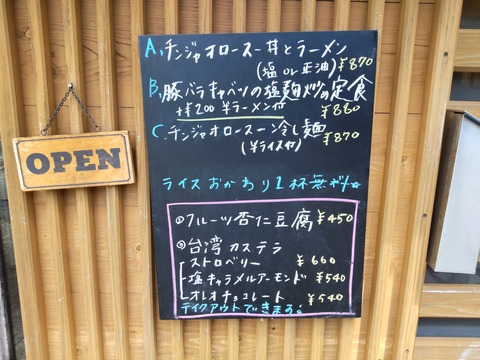 OPEN
A,チンジャオロースー丼とラーメン
(塩or正油) ¥870
B,豚バラキャベツの塩麹炒め定食
+¥200 半ラーメン付 ¥880
C.チンジャオロースー冷し麺
(半ライス付) ¥870
ライスおかわり1杯無料☆
フルーツ杏仁豆腐 ¥450
台湾カステラ
ストロベリー ¥660
塩キャラメルアーモンド ¥540
オレオチョコレート ¥540
テイクアウトできます!